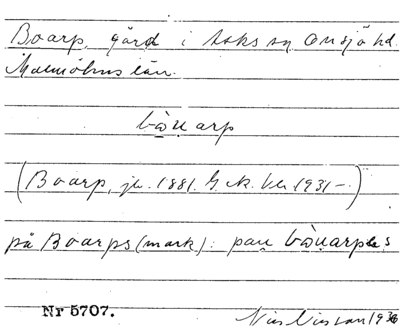 Boarp, gård i Asks sn Onsjö hd.
Malmöhus län.
bo̱u̯arp
(Boarp, jr. 1881. G.k. bl. 1931 –.)
på Boarps (mark): pau̯ bo̱u̯arps
Nr 5707.
Nils Nilsson 1936